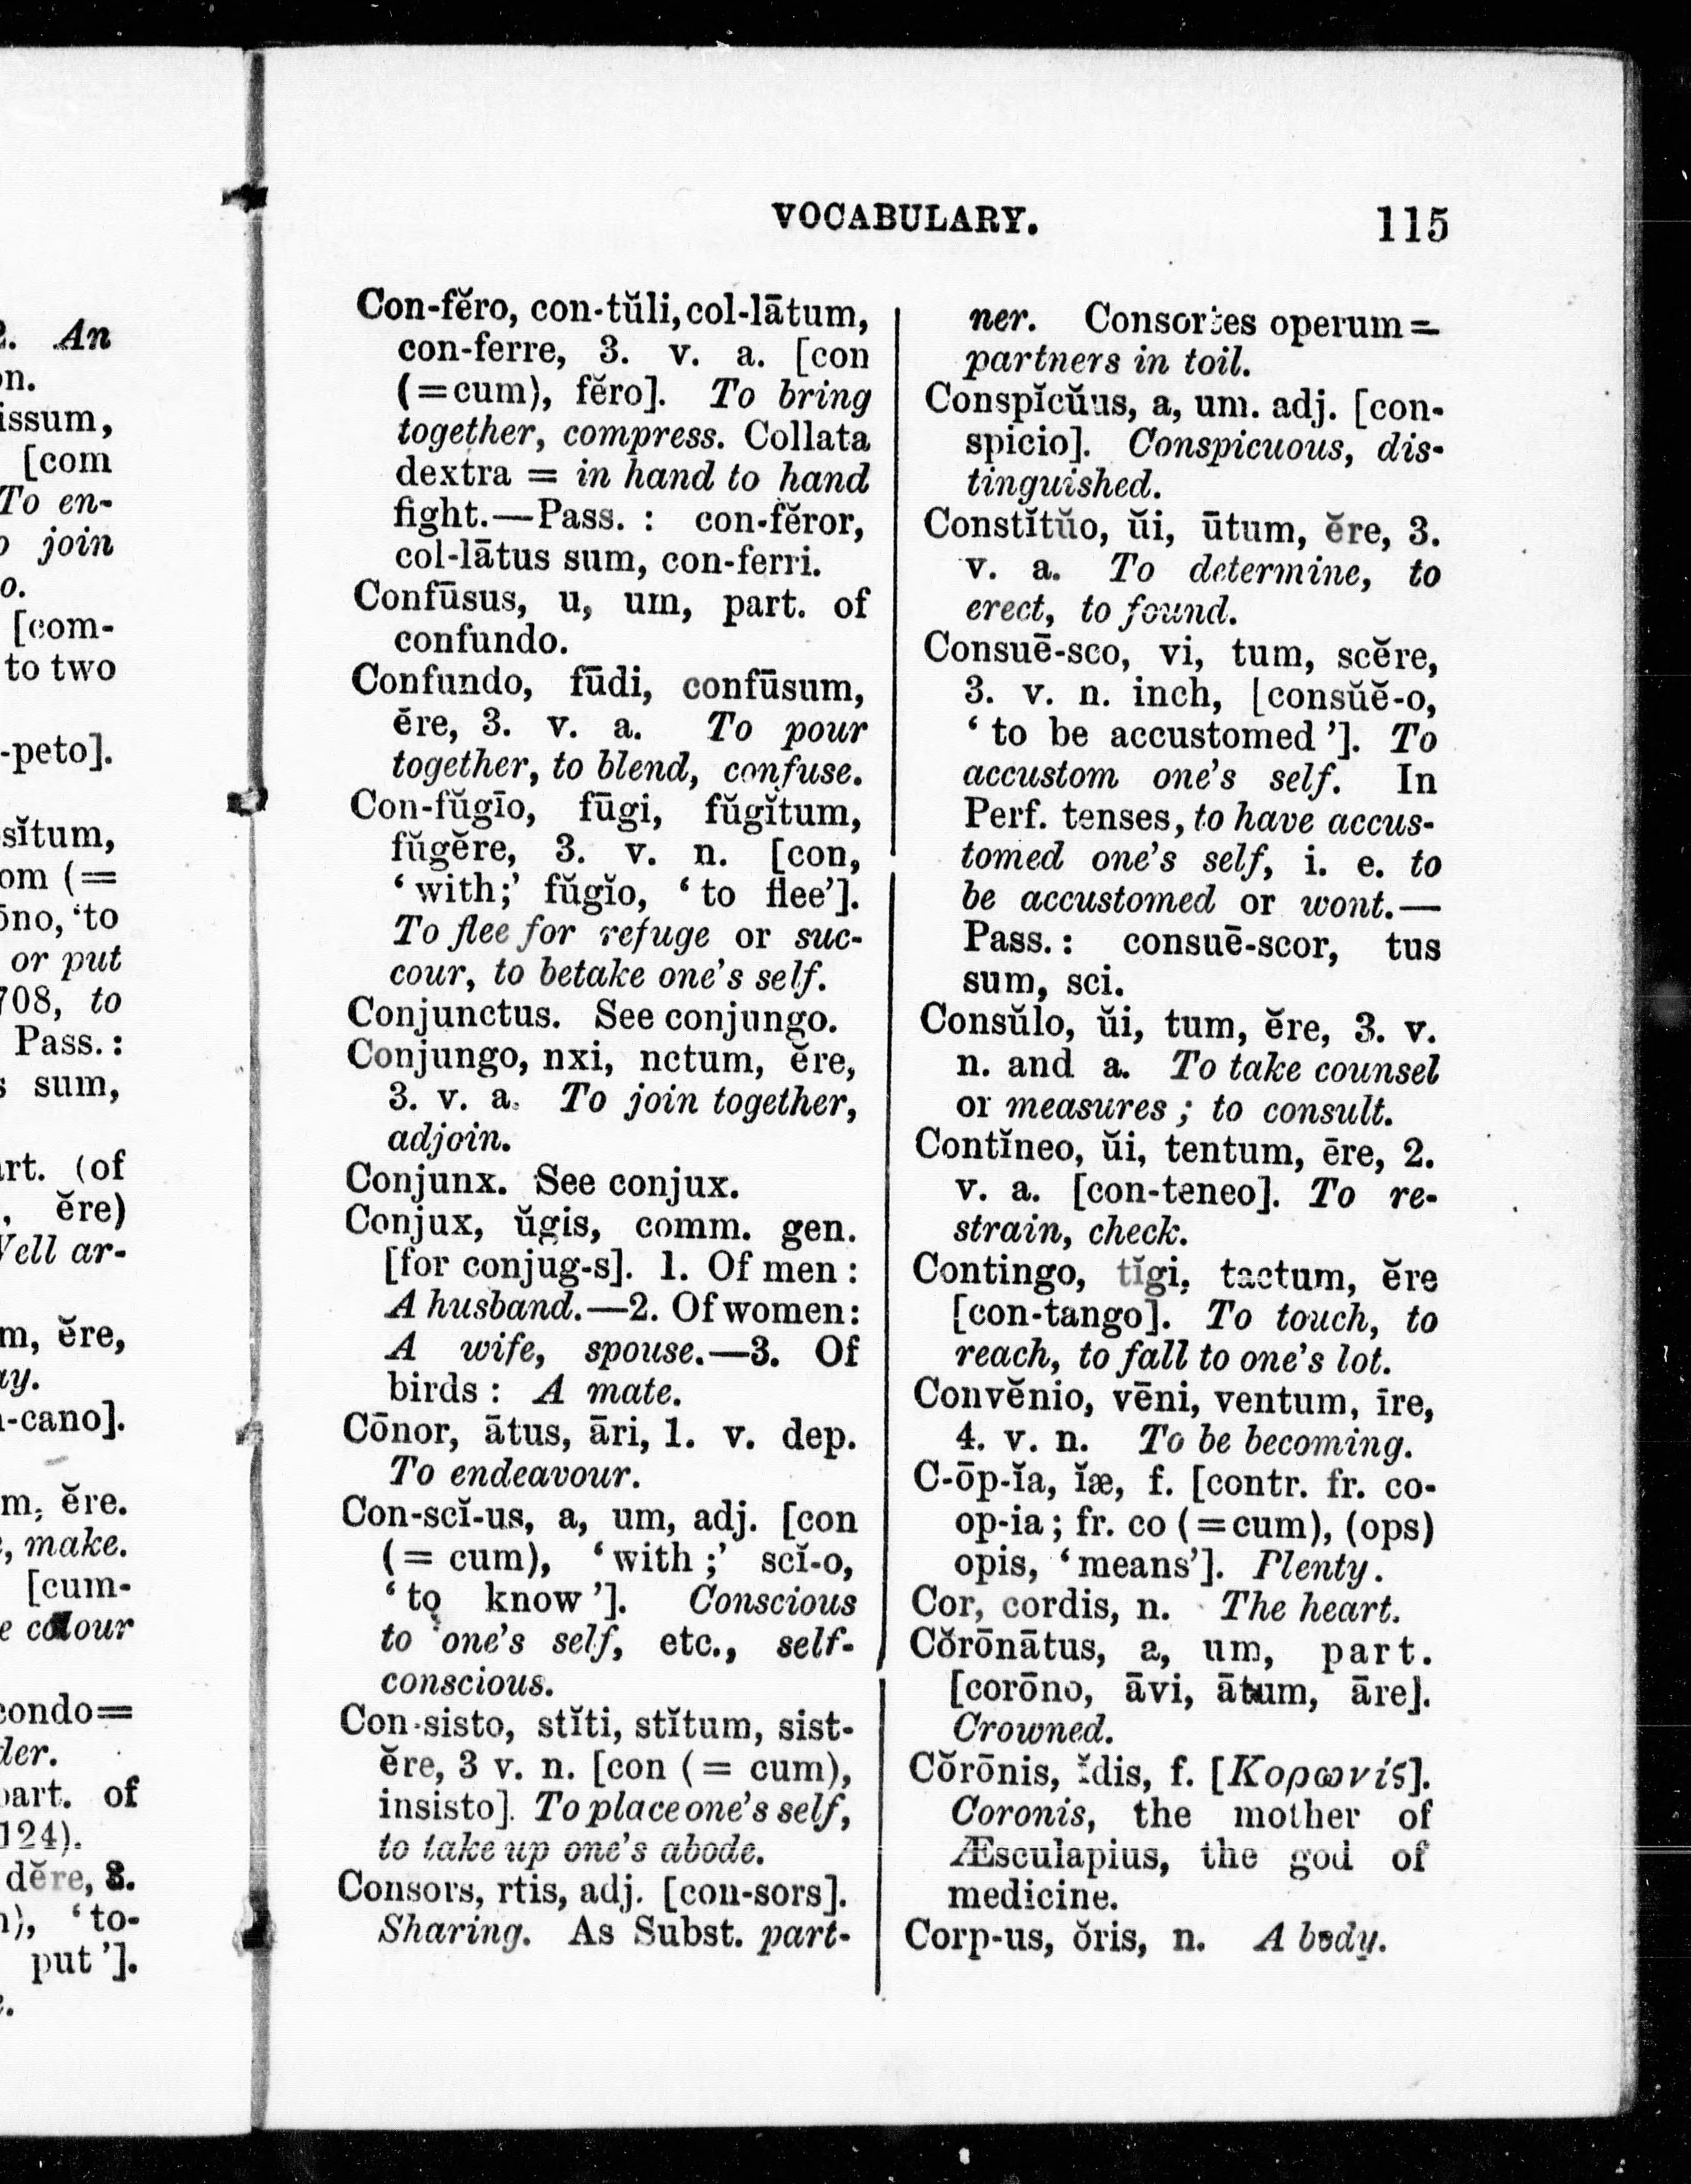 2. An
on.
issum,
[com
To en-
join
o.
[com-
to two
-peto].
sĭtum,
om (=
ōno, ‘to
or put
708, to
Pass.:
s sum,
art. (of
, ĕre)
Well ar-
m, ĕre,
ay.
-cano].
m, ĕre.
, make.
[cum-
e colour
condo=
der.
part. of
124).
dĕre, 3.
), ‘to-
put’].
VOCABULARY. 115
Con-fĕro, con-tŭli, col-lātum,
con-ferre, 3. v. a. [con
(=cum), fĕro]. To bring
together, compress. Collata
dextra = in hand to hand
fight.—Pass. : con-fĕror,
col-lātus sum, con-ferri.
Confūsus, u, um, part. of
confundo.
Confundo, fūdi, confūsum,
ēre, 3. v. a. To pour
together, to blend, confuse.
Con-fŭgīo, fūgi, fŭgĭtum,
fŭgĕre, 3. v. n. [con,
‘with;’ fŭgĭo, ‘to flee’].
To flee for refuge or suc-
cour, to betake one’s self.
Conjunctus. See conjungo.
Conjungo, nxi, nctum, ĕre,
3. v. a. To join together,
adjoin.
Conjunx. See conjux.
Conjux, ŭgis, comm. gen.
[for conjug-s]. 1. Of men :
A husband.—2. Of women:
A wife, spouse.—3. Of
birds : A mate.
Cōnor, ātus, āri, 1. v. dep.
To endeavour.
Con-scĭ-us, a, um, adj. [con
(= cum), ‘with ;’ scĭ-o,
‘to know’]. Conscious
to one’s self, etc., self-
conscious.
Con-sisto, stĭti, stĭtum, sist-
ĕre, 3 v. n. [con (= cum),
insisto]. To place one’s self,
to take up one’s abode.
Consors, rtis, adj. [con-sors].
Sharing. As Subst. part-
ner. Consortes operum=
partners in toil.
Conspĭcŭus, a, um. adj. [con-
spicio]. Conspicuous, dis-
tinguished.
Constĭtŭo, ŭi, ūtum, ĕre, 3.
v. a. To determine, to
erect, to found.
Consuē-sco, vi, tum, scĕre,
3. v. n. inch, [consŭĕ-o,
‘to be accustomed’]. To
accustom one’s self. In
Perf. tenses, to have accus-
tomed one’s self, i. e. to
be accustomed or wont.—
Pass. : consuē-scor, tus
sum, sci.
Consŭlo, ŭi, tum, ĕre, 3. v.
n. and a. To take counsel
or measures ; to consult.
Contĭneo, ŭi, tentum, ēre, 2.
v. a. [con-teneo]. To re-
strain, check.
Contingo, tĭgi, tactum, ĕre
[con-tango]. To touch, to
reach, to fall to one’s lot.
Convĕnio, vēni, ventum, īre,
4. v. n. To be becoming.
C-ōp-ĭa, ĭæ, f. [contr. fr. co-
op-ia ; fr. co (=cum), (ops)
opis, ‘means’]. Plenty.
Cor, cordis, n. The heart.
Cŏrōnātus, a, um, part.
[corōno, āvi, ātum, āre].
Crowned.
Cŏrōnis, ĭdis, f. [Κορωνίς].
Coronis, the mother of
Æsculapius, the god of
medicine.
Corp-us, ŏris, n. A body.